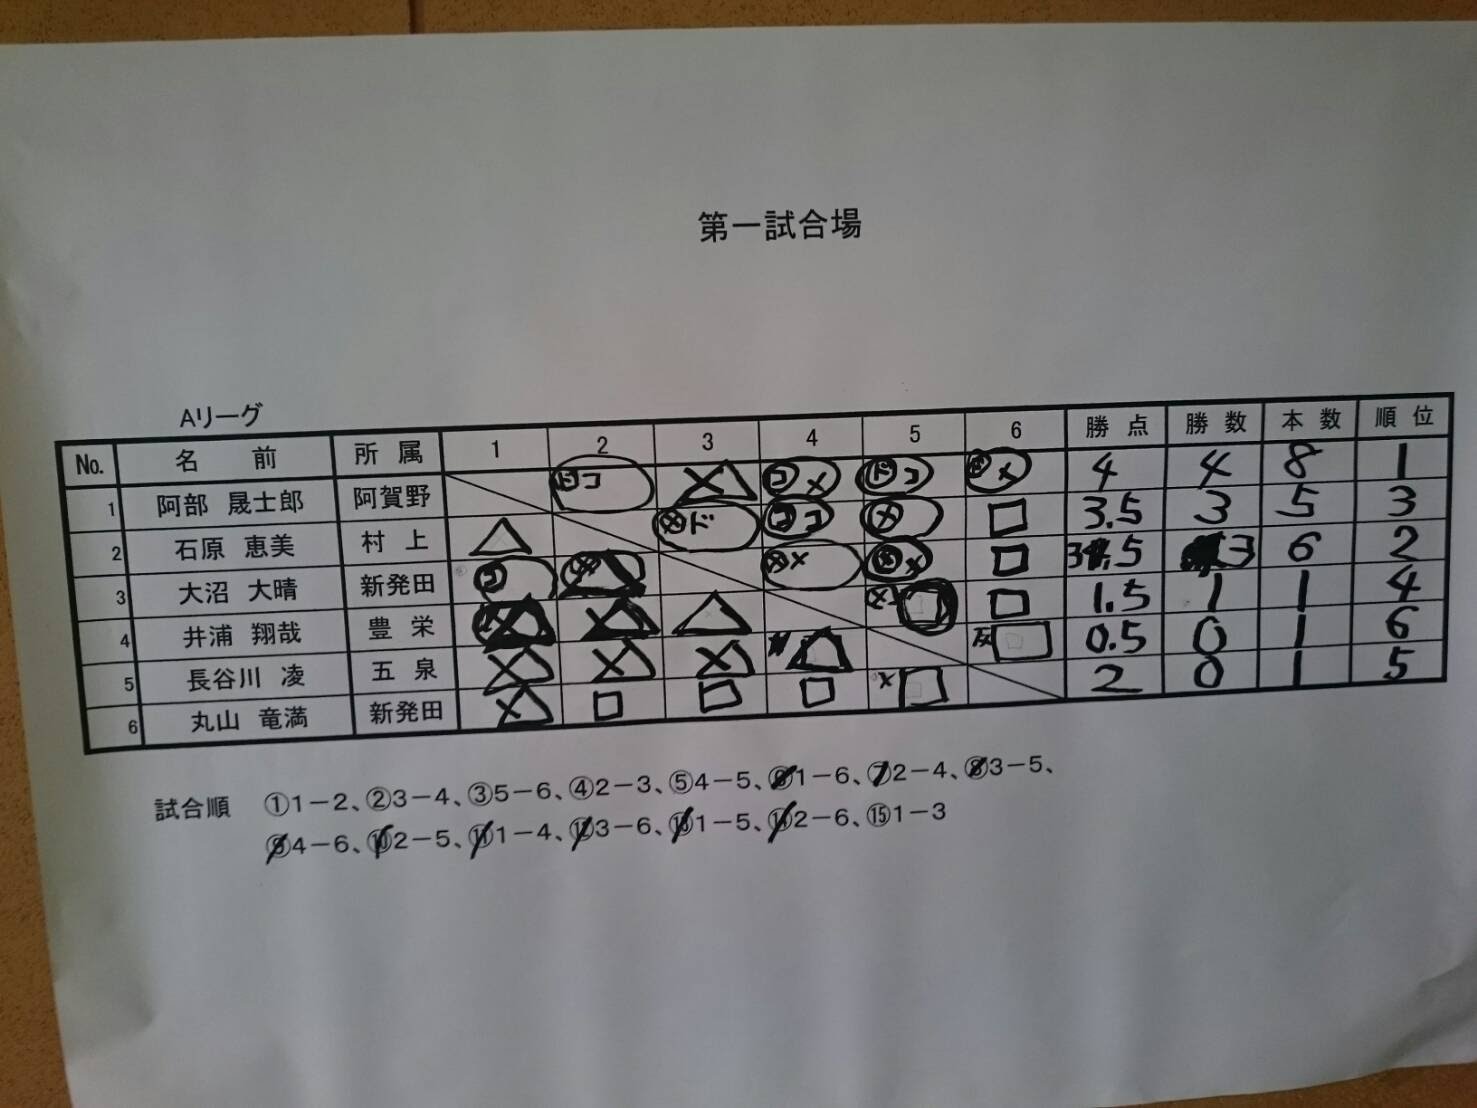 第一試合場
Aリーグ
No. 名 前 所 属 1 2 3 4 5 6 勝 点 勝 数 本 数 順 位
1 阿部 晟士郎 阿賀野 ド コ メ コ メ ド コ メ 4 4 8 1
2 石原 恵美 村 上 △ メ ド コ コ メ □ 3.5 3 5 3
3 大沼 大晴 新発田 コ メ メ メ メ □ 3.5 3 6 2
4 井浦 翔哉 豊 栄 メ △ メ □ □ 1.5 1 1 4
5 長谷川 凌 五 泉 メ メ メ △ 反 □ 0.5 0 1 6
6 丸山 竜満 新発田 メ □ □ □ メ □ 2 0 1 5
試合順 ①1－2、②3－4、③5－6、④2－3、⑤4－5、⑥1－6、⑦2－4、⑧3－5、
⑨4－6、⑩2－5、⑪1－4、⑫3－6、⑬1－5、⑭2－6、⑮1－3